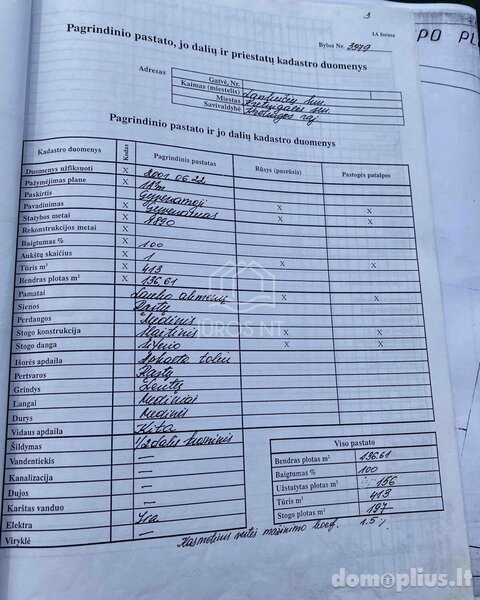 3
1A forma
Bylos Nr. 3979
Pagrindinio pastato, jo dalių ir priestatų kadastro duomenys
Adresas
Gatvė, Nr.
Kaimas (miestelis)
Miestas
Savivaldybė Kretingos raj.
Pagrindinio pastato ir jo dalių kadastro duomenys
Kadastro duomenys Kodas Pagrindinis pastatas Rūsys (pusrūsis) Pastogės patalpos
Duomenys užfiksuoti X 2001 06 22
Pažymėjimas plane X 1A1m
Paskirtis X Gyvenamoji
Pavadinimas X Gyvenamas X X
Statybos metai X 1890 X X
Rekonstrukcijos metai X
Baigtumas % X 100
Aukštų skaičius X 1
Tūris m³ X 413 X X
Bendras plotas m² X 136.61
Pamatai Lauko akmenų X X
Sienos Rąstų
Perdangos Medinės
Stogo konstrukcija Šlaitinis X X
Stogo danga Šiferio X X
Išorės apdaila Apkalta
Pertvaros Rąstų
Grindys Lentų
Langai Mediniai
Durys Medinės
Vidaus apdaila Kita
Šildymas 1/2 dalis krosninis
Vandentiekis —
Kanalizacija —
Dujos —
Karštas vanduo —
Elektra Yra
Viryklė —
Viso pastato
Bendras plotas m² 136.61
Baigtumas % 100
Užstatytas plotas m² 156
Tūris m³ 413
Stogo plotas m² 197
Kasmetinis vertės mažinimo koef. 1.5%
PO PL
domoplius.lt